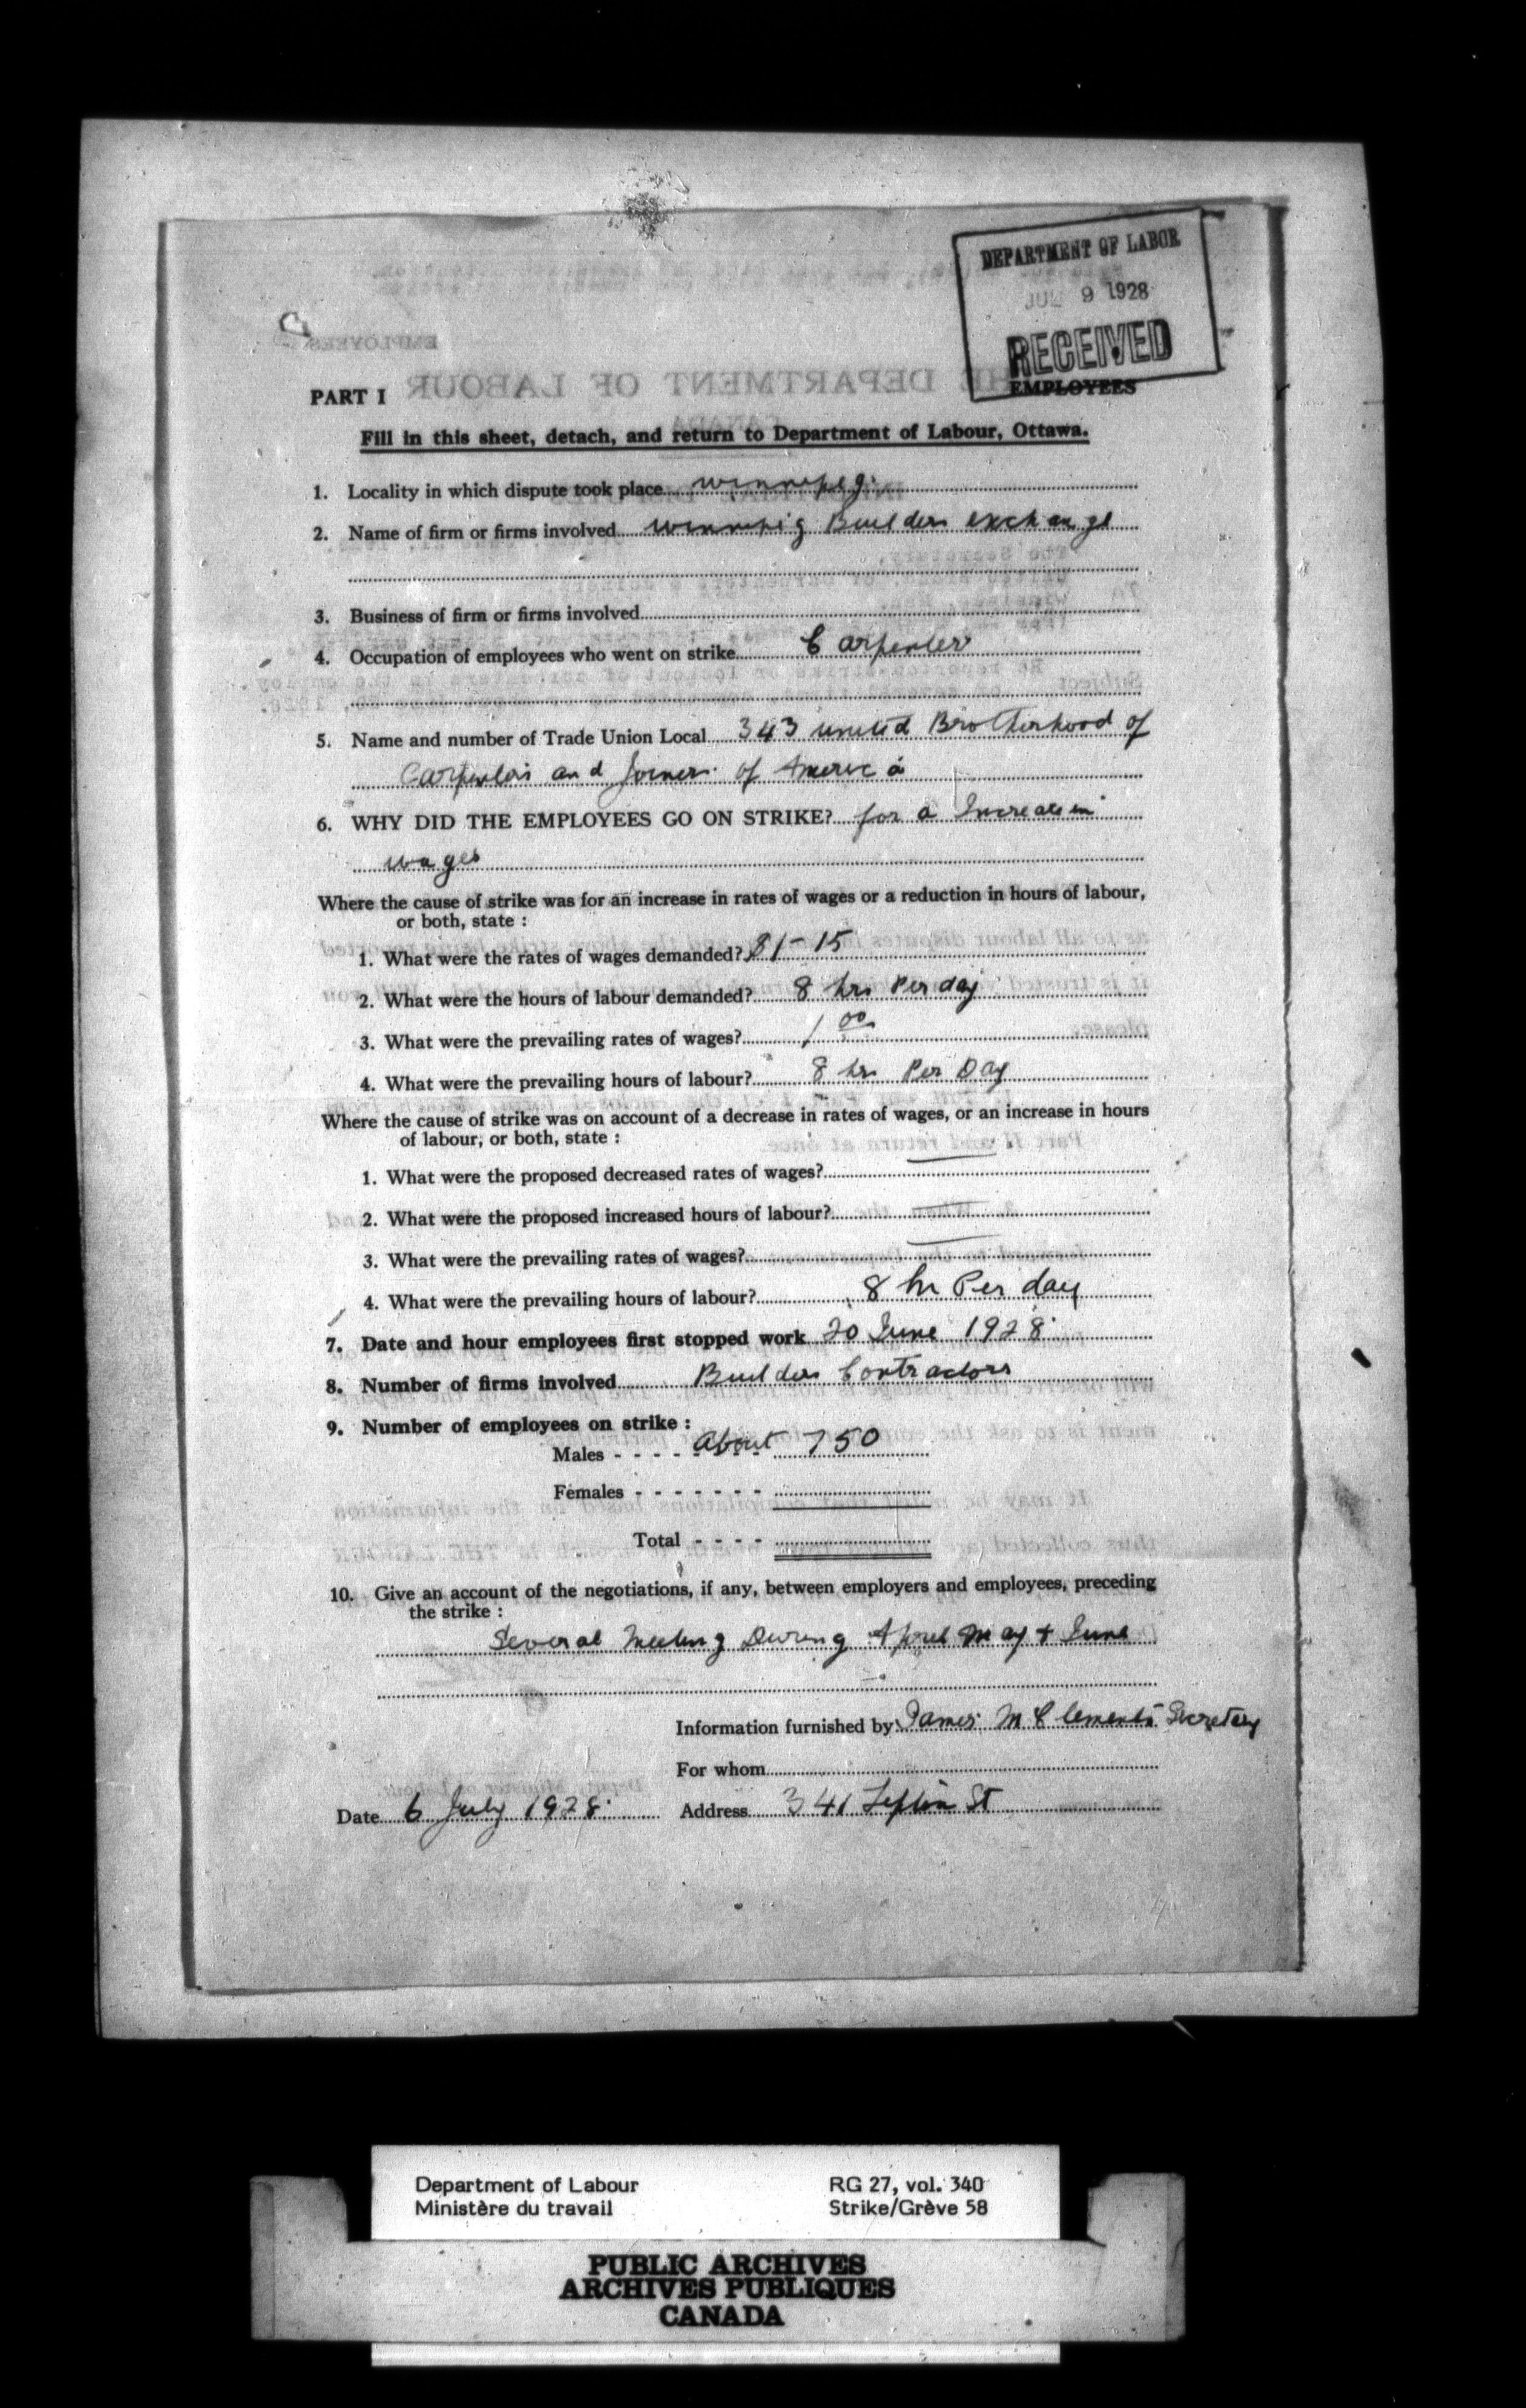 DEPARTMENT OF LABOR
JUL 9 1928
RECEIVED
PART I
EMPLOYEES
Fill in this sheet, detach, and return to Department of Labour, Ottawa.
1. Locality in which dispute took place winnipeg.
2. Name of firm or firms involved winnipig Builders exchange
3. Business of firm or firms involved
4. Occupation of employees who went on strike Carpenters
5. Name and number of Trade Union Local 343 united Brotherhood of
Carpenters and Joiners of America
6. WHY DID THE EMPLOYEES GO ON STRIKE? for a Increase in
wages
Where the cause of strike was for an increase in rates of wages or a reduction in hours of labour,
or both, state :
1. What were the rates of wages demanded? $1-15
2. What were the hours of labour demanded? 8 hrs Per day
3. What were the prevailing rates of wages? 1 00
4. What were the prevailing hours of labour? 8 hrs Per Day
Where the cause of strike was on account of a decrease in rates of wages, or an increase in hours
of labour, or both, state :
1. What were the proposed decreased rates of wages?
2. What were the proposed increased hours of labour?
3. What were the prevailing rates of wages?
4. What were the prevailing hours of labour? 8 hr Per day
7. Date and hour employees first stopped work 20 June 1928
8. Number of firms involved Builders Contractors
9. Number of employees on strike :
Males - - - - About 750
Females - - - - - - -
Total - - - -
10. Give an account of the negotiations, if any, between employers and employees, preceding
the strike :
Several Meeting During April May + June
Information furnished by James M Clements Secretary
For whom
Date 6 July 1928 Address 341 St
Department of Labour RG 27, vol. 340
Ministère du travail Strike/Grève 58
PUBLIC ARCHIVES
ARCHIVES PUBLIQUES
CANADA